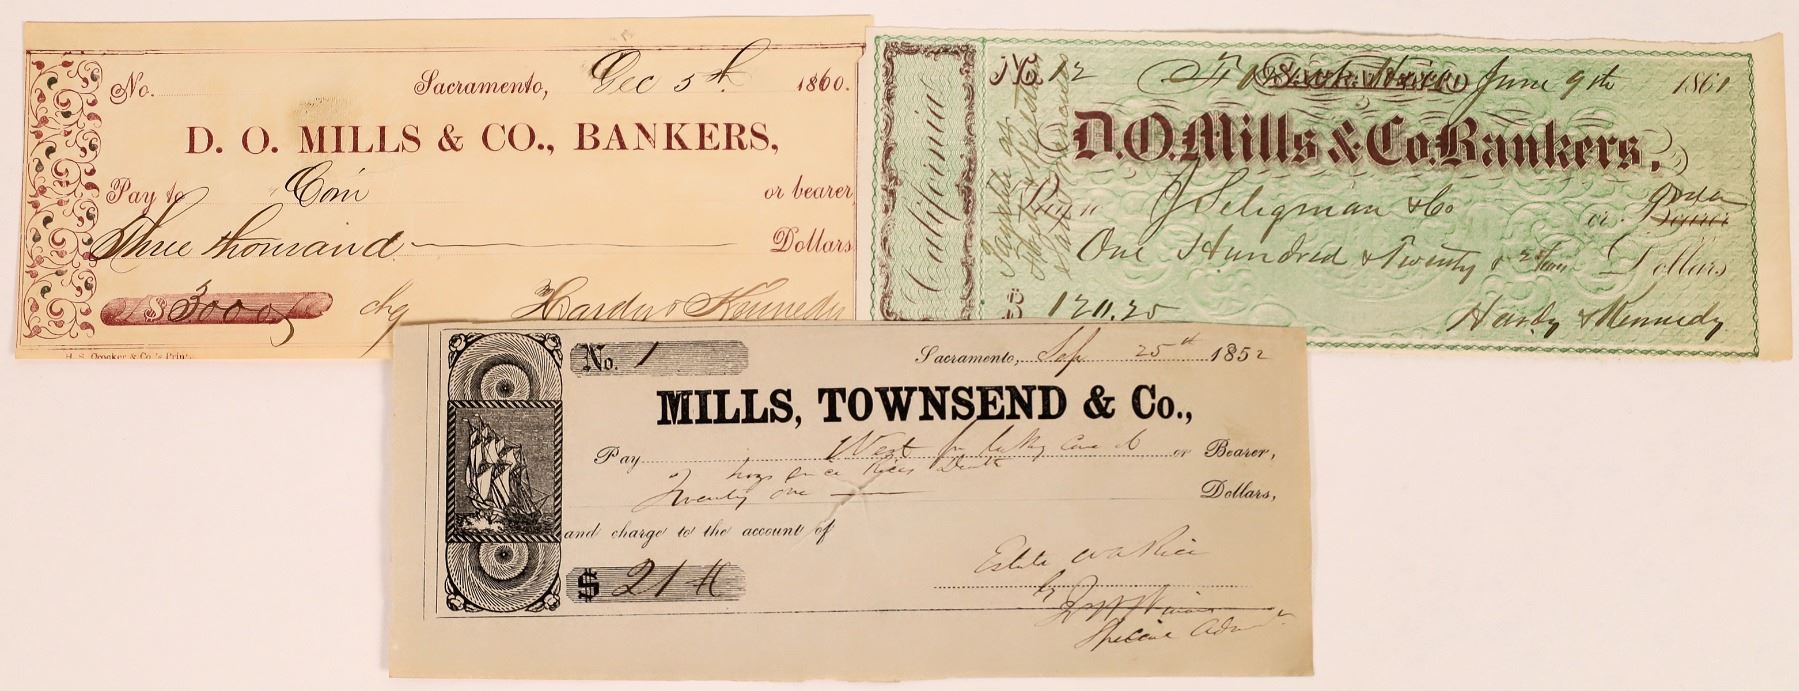 No. Sacramento, Dec 5th. 1860.
D. O. MILLS & CO., BANKERS,
Pay to Coin or bearer
Three thousand Dollars
$ 3000 Hardy & Kennedy
H. S. Crocker & Co.'s Print.
California
No 12 June 9th 1861
D.O. Mills & Co. Bankers,
J Seligman & Co or
One Hundred & Twenty Dollars
$ 120.25 Hardy & Kennedy
No. 1 Sacramento, Sep 25th 1852
MILLS, TOWNSEND & Co.,
Pay West for taking care of or Bearer,
of hogs since Rices Death
Twenty one Dollars,
and charge to the account of
$ 21 Estate Rice
by
Special